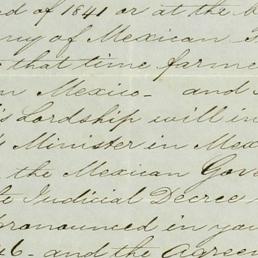 d of 1841 or at the
ny of Mexican
that time farme
n Mexico - and
's Lordship will in
Minister in Mex
the Mexican Gov
te Judicial Decree
pronounced in you
46 - and the Agree